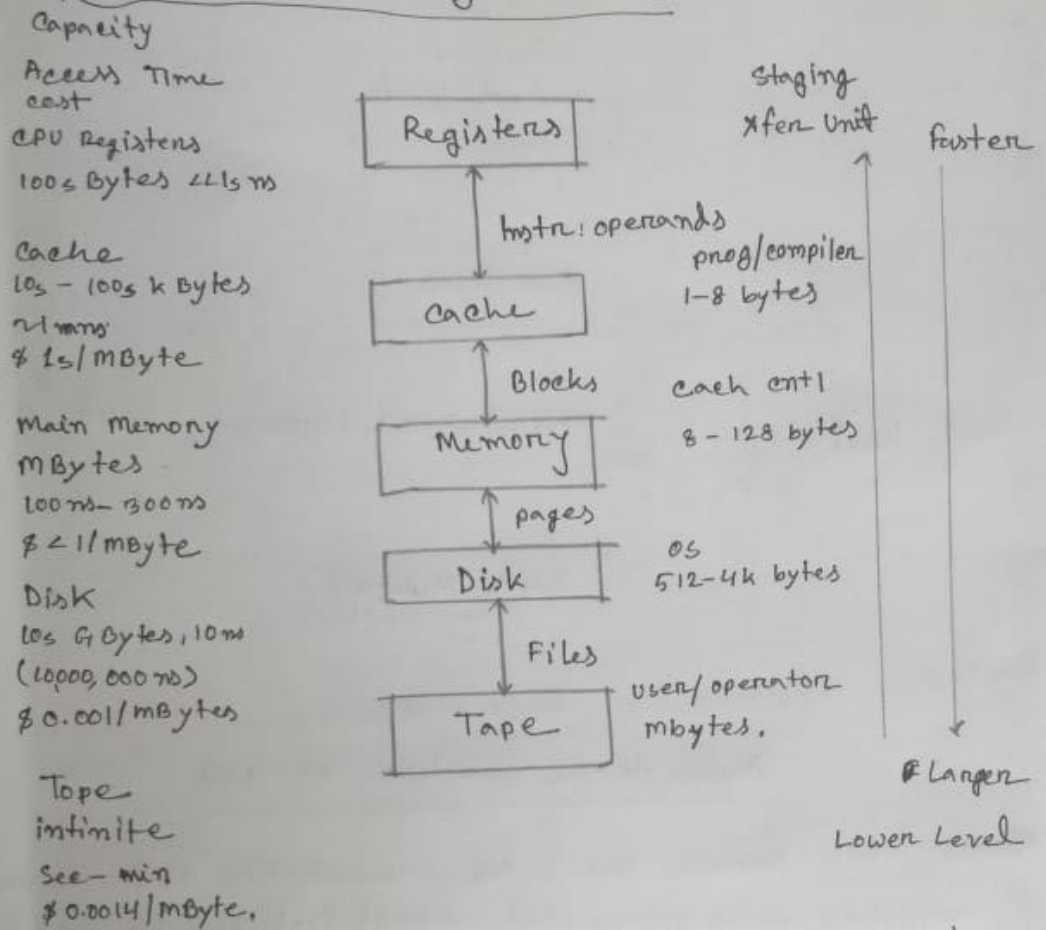 Capacity
Access Time
cost
CPU Registers
100s Bytes <<1s ns
Cache
10s - 100s k Bytes
~1 ns
$ 1s/mByte
Main Memory
MBytes
100ns- 300ns
$ < 1/mByte
Disk
10s G Bytes, 10 ms
(10,000,000 ns)
$ 0.001/mBytes
Tope
infinite
Sec - min
$ 0.0014/mByte.
Registers
Instr: operands
Cache
Blocks
Memory
pages
Disk
Files
Tape
Staging
xfer Unit
prog/compiler
1-8 bytes
cach cntl
8 - 128 bytes
OS
512-4k bytes
user/operator
mbytes.
faster
Larger
Lower Level